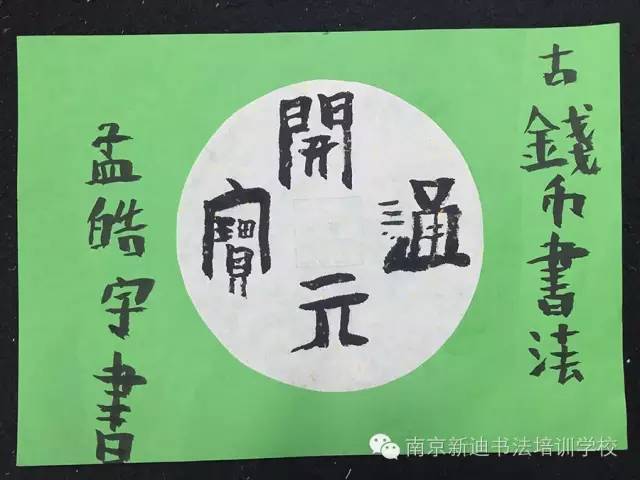 古錢币書法
開元通寶
孟皓宇書
南京新迪书法培训学校